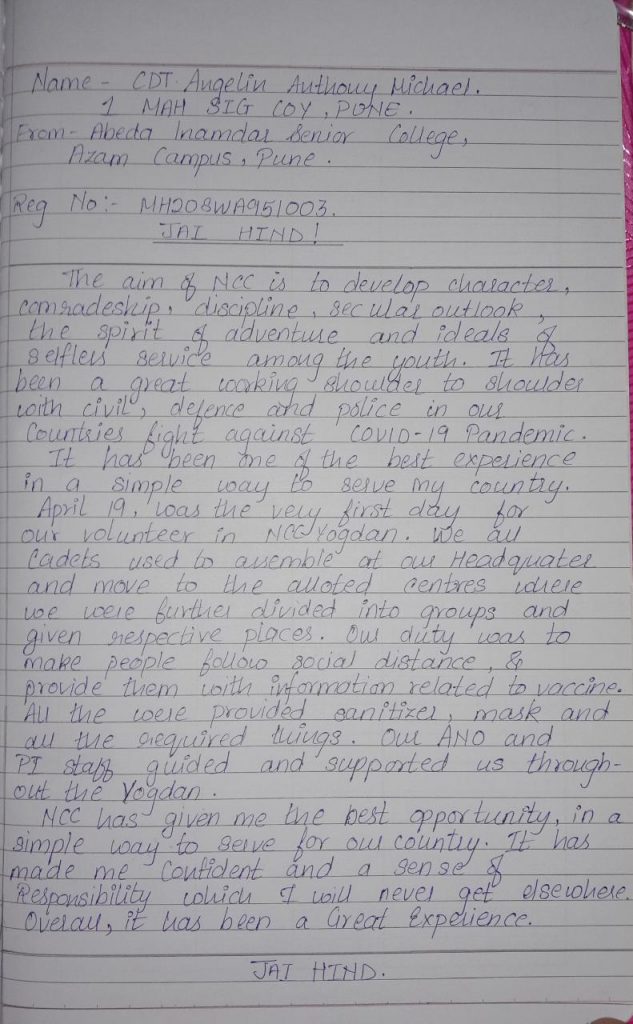 Name - CDT. Angelin Anthony Michael.
1 MAH SIG COY, PUNE.
From - Abeda Inamdar Senior College,
Azam Campus, Pune.
Reg No:- MH20SWA951003.
JAI HIND!
The aim of NCC is to develop character,
comradeship, discipline, secular outlook,
the spirit of adventure and ideals of
selfless service among the youth. It has
been a great working shoulder to shoulder
with civil, defence and police in our
Countries fight against COVID-19 Pandemic.
It has been one of the best experience
in a simple way to serve my country.
April 19, was the very first day for
our volunteer in NCC Yogdan. We all
Cadets used to assemble at our Headquater
and move to the alloted centres where
we were further divided into groups and
given respective places. Our duty was to
make people follow social distance, &
provide them with information related to vaccine.
All the were provided sanitizer, mask and
all the required things. Our ANO and
PI staff guided and supported us through-
out the Yogdan.
NCC has given me the best opportunity, in a
simple way to serve for our country. It has
made me Confident and a sense of
Responsibility which I will never get elsewhere.
Overall, it has been a Great Experience.
JAI HIND.